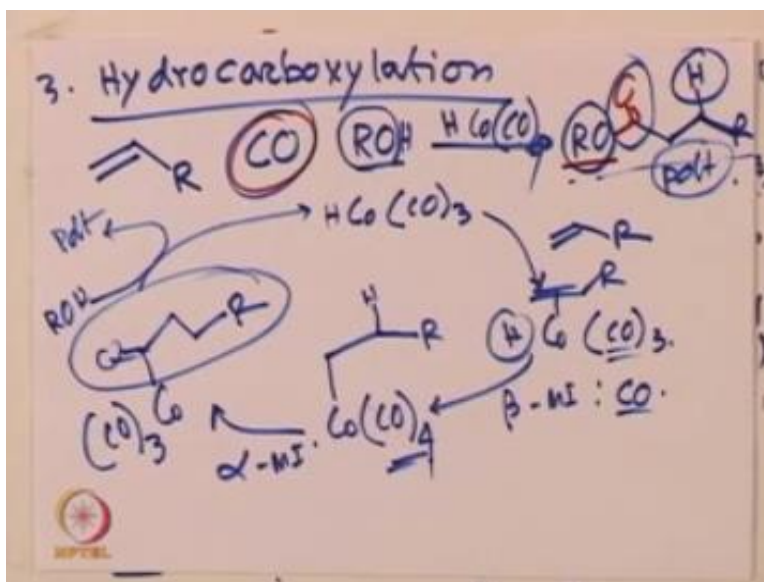 3. Hydrocarboxylation
R CO ROH HCo(CO) RO O H R
pdt.
pdt HCo(CO)3 R
ROH R H R R
O H Co (CO)3.
(CO)3 Co Co(CO)4 β-MI : CO.
α-MI.
NPTEL